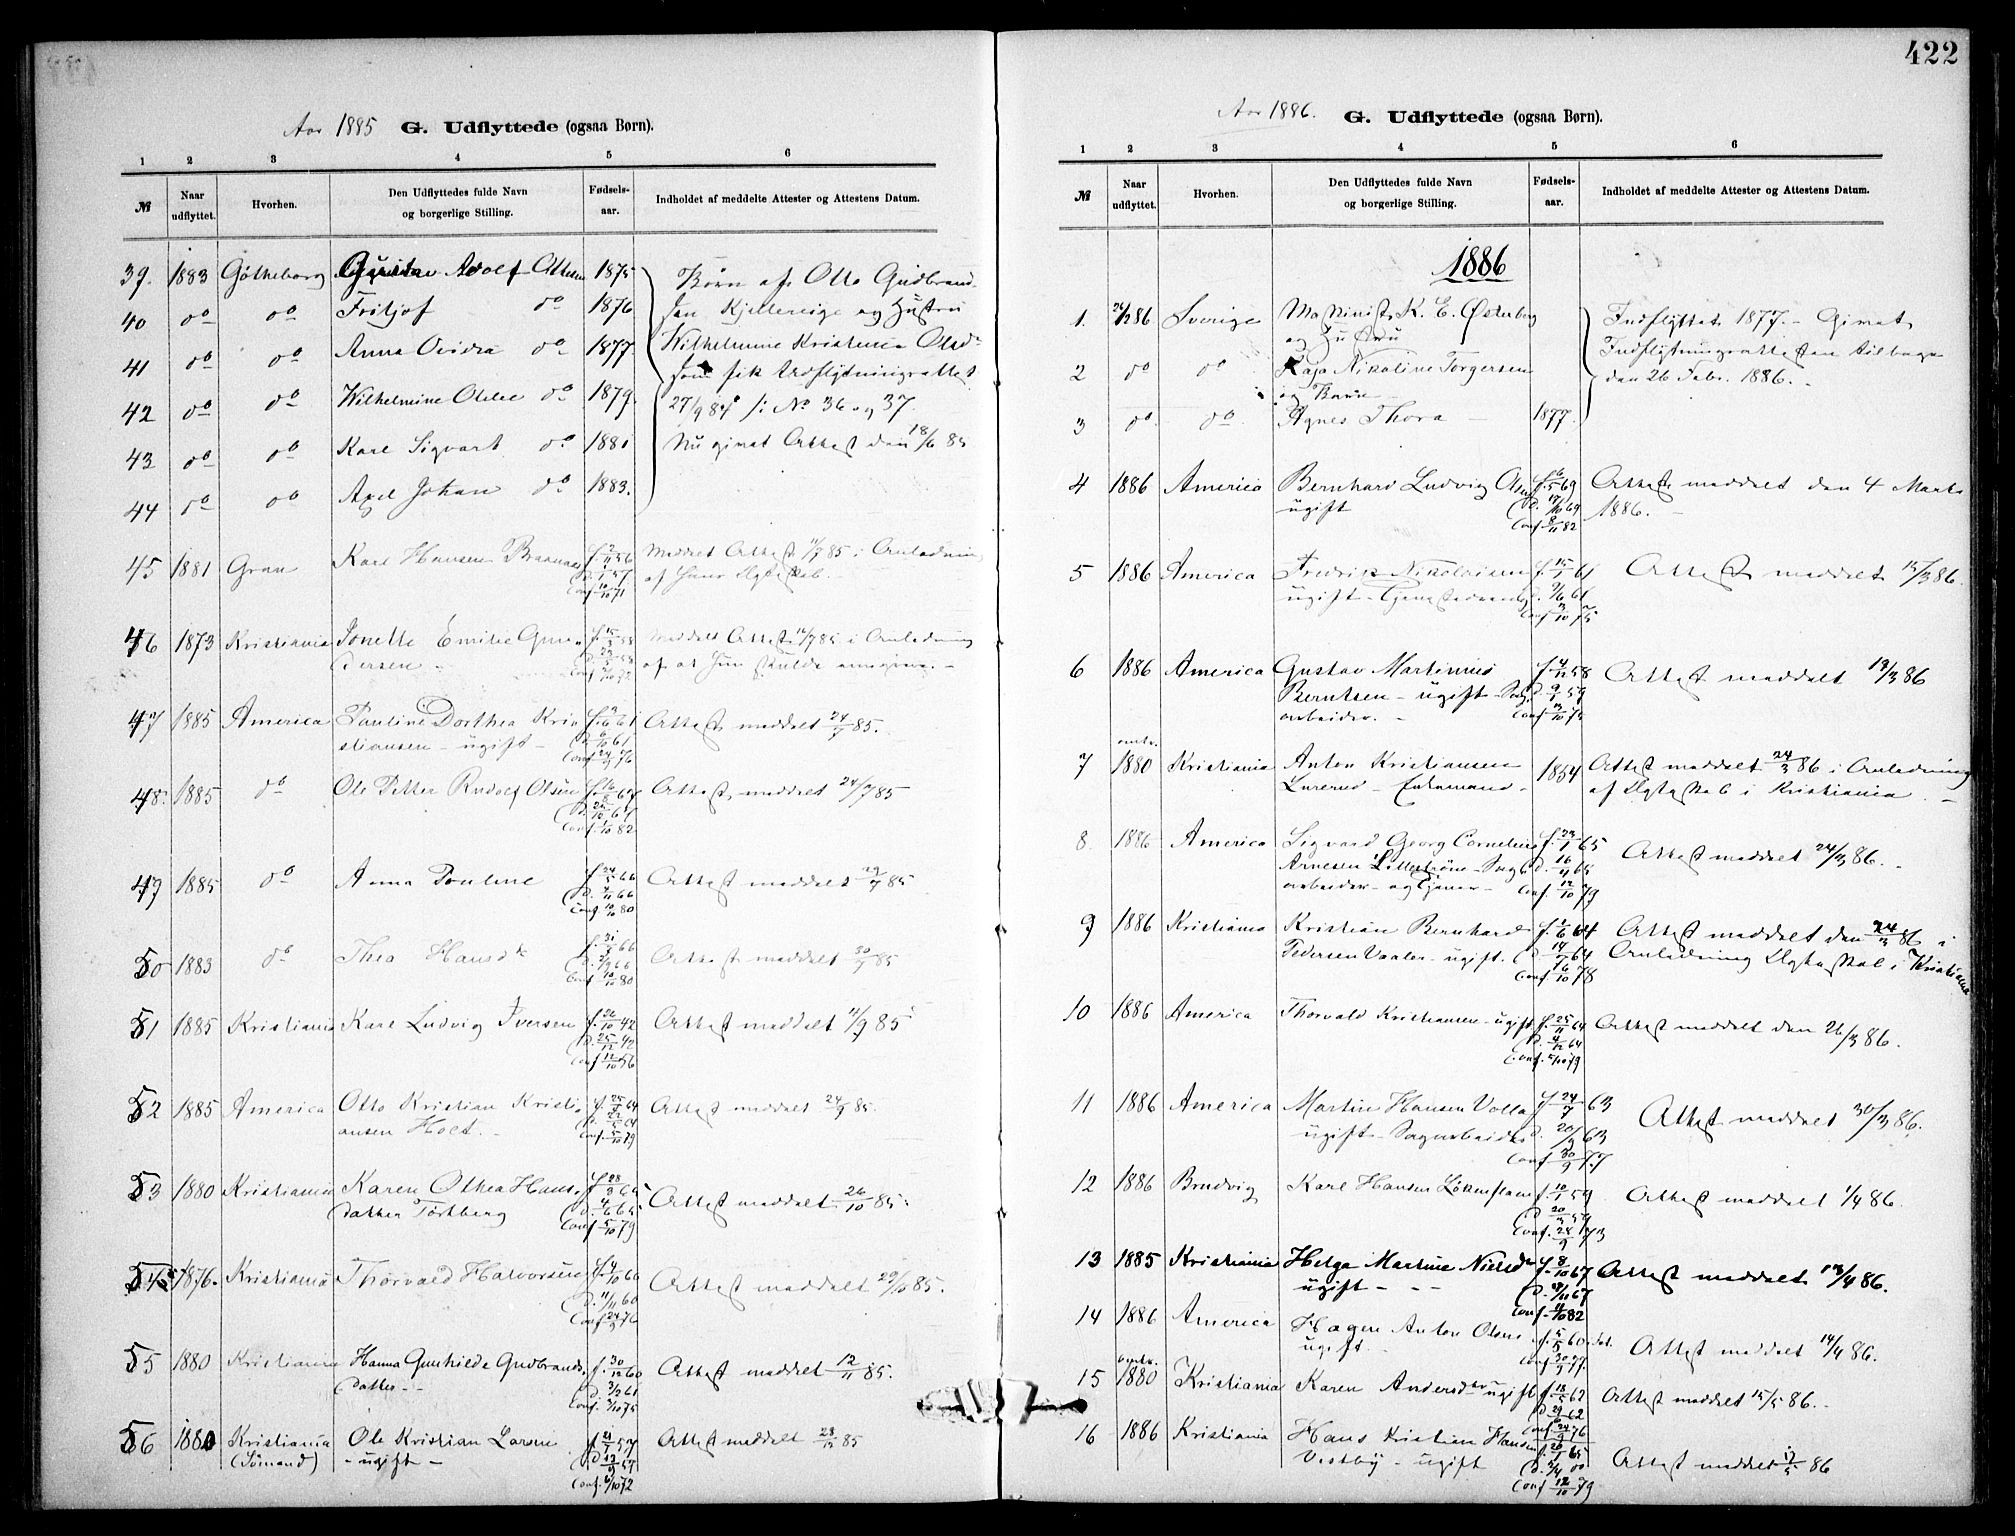 422
Aar 1885 G. Udflyttede (ogsaa Børn).
1 2 3 4 5 6
№ Naar udflyttet. Hvorhen. Den Udflyttedes fulde Navn og borgerlige Stilling. Fødsels-aar. Indholdet af meddelte Attester og Attestens Datum.
39. 1883 Götheborg Gustav Adolf 1875 Børn af Otto Gudbrand-
40 do do Fritjof do 1876 sen og Hustru
41 do do Anna do 1877. Wilhelmine Kristensa Olsdr
som fik Udflytningsattest
42 do do Wilhelmine do 1879. 27/9 84 №. 36 og 37.
43 do do Karl Sigvart do 1881 Nu givet Attest den 18/6 85
44 do do Axel Johan do 1883.
45 1881 Gran Karl Hansen f. 56 Meddelt Attest 85 i Anledning
af hans Ægteskab.
46 1873 Kristiania Jonette Emilie Gun- Meddelt Attest 85 i Anledning
dersen af at hun skulde
47 1885 America Pauline Dorthea Kri- 61 Attest meddelt 85.
stiansen - ugift -
48. 1885 do Ole Petter Rudolf Olsen Attest meddelt 24/7 85
Conf. 82
49 1885 do Anna Pouline f. 24/5 66 Attest meddelt 85
Conf. 80
50 1883 do Thea Hansdr 66 Attest meddelt 85
Conf. 80
51 1885 Kristiania Karl Ludvig Iversen f. 26/10 42 Attest meddelt 11/9 85
D. 25/12 42
Conf. 12/10 56
52 1885 America Otto Kristian Kristi- f. 64 Attest meddelt 24/9 85.
ansen Holt. - Conf. 5/10 79
53 1880 Kristiania Karen Othea Hans- f. 28/3 65 Attest meddelt 26/10 85.
datter D. 4/6 65
Conf. 5/10 79
54 1876. Kristiania Thorvald Halvorsen f. 4/10 60 Attest meddelt 29/10 85.
D. 11/11 60
Conf. 24/9 76
55 1880 Kristiania Hanna Gunhilde Gudbrands- f. 30/12 60 Attest meddelt 12/11 85.
datter - - D. 61
Conf. 75
56 1880 Kristiania Ole Kristian Larsen f. 57 Attest meddelt 28/12 85
(Sømand) - ugift - D. 57
Conf. 6/10 72
Aar 1886. G. Udflyttede (ogsaa Børn).
1 2 3 4 5 6
№ Naar udflyttet. Hvorhen. Den Udflyttedes fulde Navn og borgerlige Stilling. Fødsels-aar. Indholdet af meddelte Attester og Attestens Datum.
1886
1. 26/2 86 Sverige Maskinist K. E. Østerberg Indflyttet 1877. - Givet
og Hustru Indflytningsattesten tilbage
2 do do Kaja Nikoline Torgersen den 26 Febr. 1886. -
og Barn -
3 do. do. Agnes Thora - 1877.
4 1886 America Bernhard Ludvig Olsen f. 6/5 69 Attest meddelt den 4 Marts
ugift D. 69 1886. -
Conf. 8/11 82
5 1886 America Fredrik Nikolaisen f. 15/1 61 Attest meddelt 86.
ugift - D. 61
Conf. 3/10 75
6 1886 America Gustav Martinius f. 4/12 58 Attest meddelt 86
Berntsen - ugift - Sag-
arbeider. - Conf.
7 omtr. 1880 Kristiania Anton Kristiansen 1854 Attest meddelt 24/3 86 i Anledning
- Enkemand - af Ægteskab i Kristiania. -
8. 1886 America Sigvard Georg Cornelius f. 23/1 65 Attest meddelt 24/3 86. -
Arnesen Lillestrøm - Sag- D. 16/4 65
arbeider - og Conf. 12/10 79
9 1886 Kristiania Kristian Bernhard f. 64 Attest meddelt den 24/3 86 i
Pedersen Vaaler - ugift. D. 64 Anledning Ægteskab i Kristiania
Conf. 6/10 78
10 1886 America Thorvald Kristiansen - ugift f. 25/11 64 Attest meddelt den 26/3 86.
D. 64
Conf. 5/10 79
11 1886 America Martin Hansen Volla f. 24/7 63 Attest meddelt 30/3 86.
ugift - Sagarbeider D. 20/9 63
Conf. 30/9 77
12 1886 Brudvig Karl Hansen f. 10/1 59 Attest meddelt 1/4 86.
D. 20/3 59
Conf. 28/9 73
13 1885 Kristiania Helga Martine Nielsdr f. 8/10 67 Attest meddelt 13/4 86.
ugift - - - D. 67
Conf. 82
14 1886 America Hagen Anton Olsen f. 5/5 60 Attest meddelt 14/4 86.
ugift Conf. 30/9 77.
15 omtr. 1880 Kristiania Karen Andersdr ugift f. 18/5 62 Attest meddelt 15/5 86. -
D. 29/6 62
Conf. 24/9 76
16 1886 Kristiania Hans Kristian Hansen f. 20/1 65 Attest meddelt 86
Vestby - ugift
Conf. 12/10 79